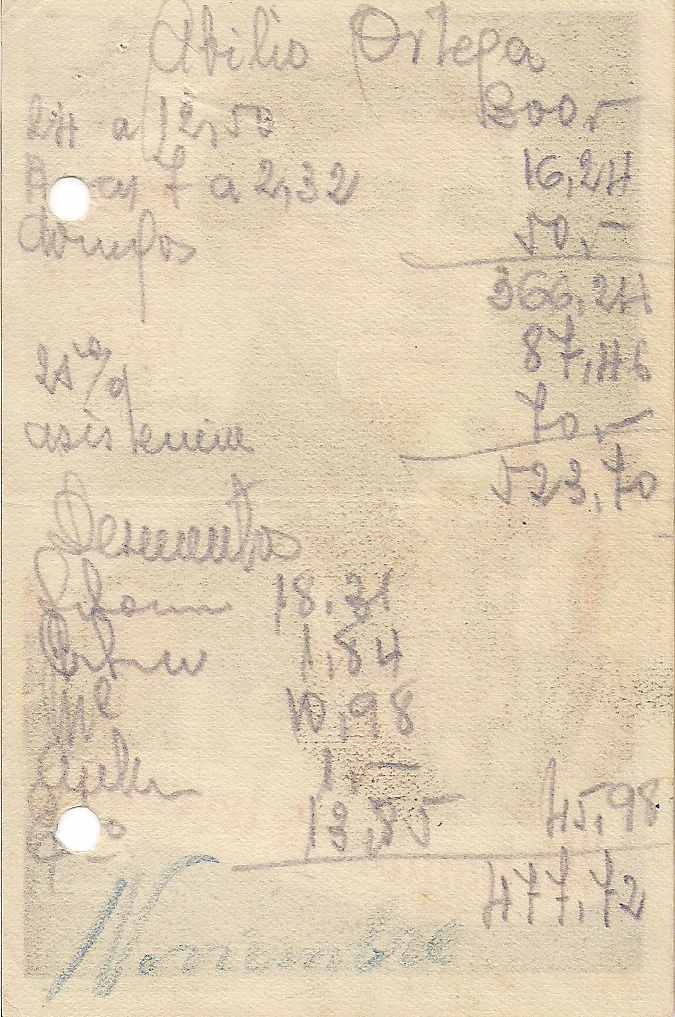 Abilio Ortega
24 a 12,50 300,-
7 a 2,32 16,24
domigos 50,-
366,24
87,46
asistencia 70,-
523,70
Descuentos
18.31
1,84
10,98
1,-
13,85 45,98
477,72
Noviembre